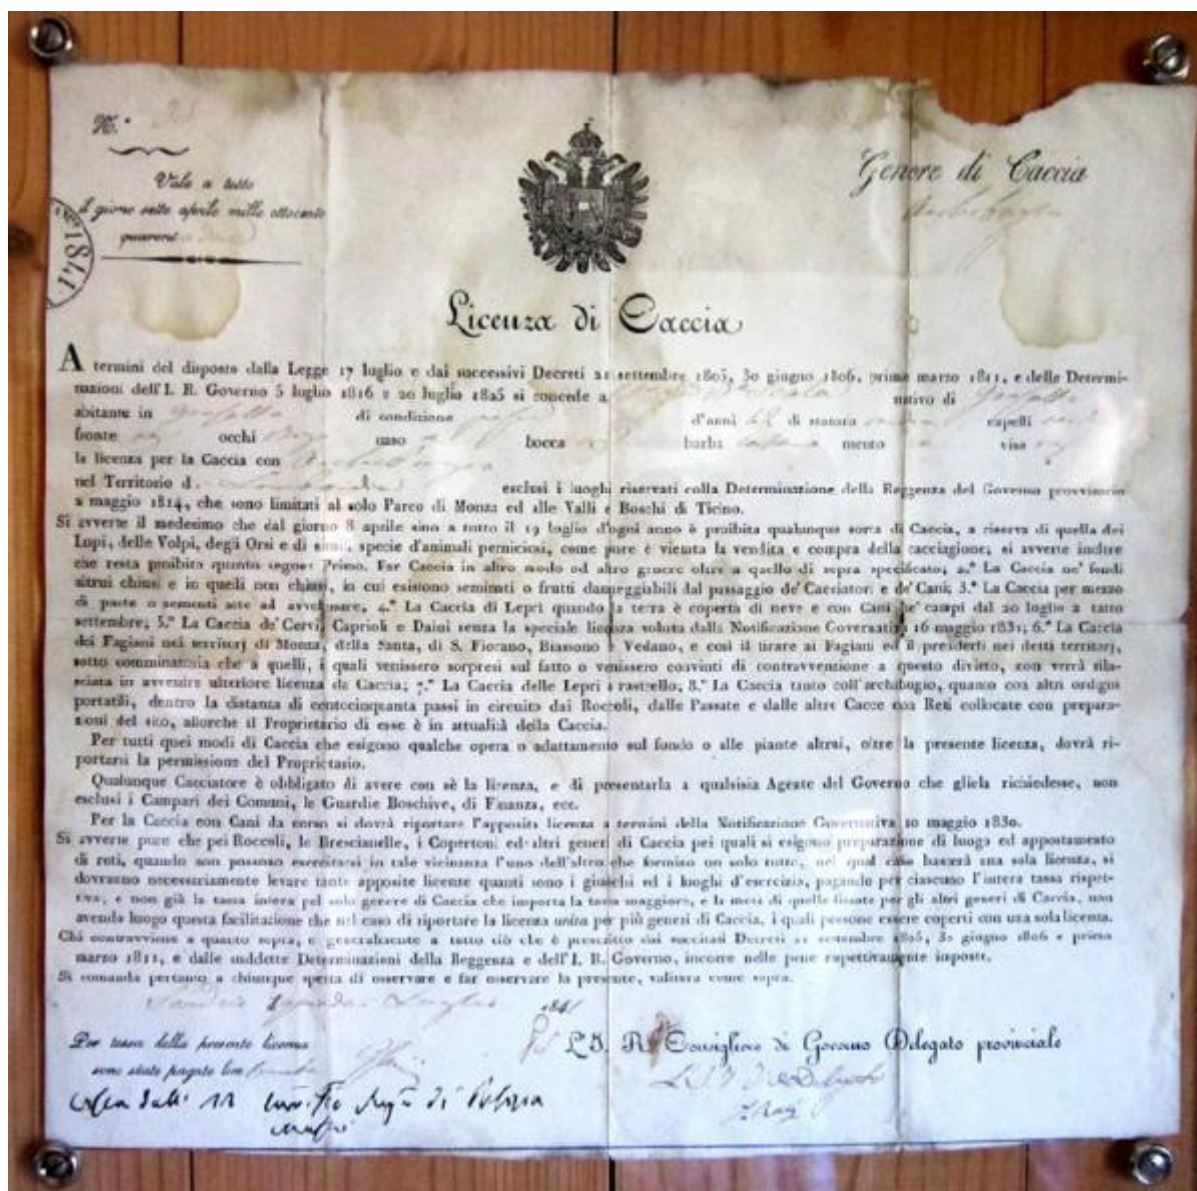 N.°
Vale a tutto
il giorno sette aprile mille ottocento
quaranta
1841
Genere di Caccia
Licenza di Caccia
A termini del disposto dalla Legge 17 luglio e dai successivi Decreti 21 settembre 1805, 30 giugno 1806, primo marzo 1811, e delle Determi-
nazioni dell'I. R. Governo 5 luglio 1816 e 20 luglio 1825 si concede a nativo di
abitante in di condizione d'anni di statura capelli
fronte occhi naso bocca barba mento viso
la licenza per la Caccia con
nel Territorio d. esclusi i luoghi riservati colla Determinazione della Reggenza del Governo provvisorio
2 maggio 1814, che sono limitati al solo Parco di Monza ed alle Valli e Boschi di Ticino.
Si avverte il medesimo che dal giorno 8 aprile sino a tutto il 19 luglio d'ogni anno è proibita qualunque sorta di Caccia, a riserva di quella dei
Lupi, delle Volpi, degli Orsi e di simil specie d'animali perniciosi, come pure è vietata la vendita e compra della cacciagione; si avverte inoltre
che resta proibito quanto segue: Primo. Far Caccia in altro modo od altro genere oltre a quello di sopra specificato; 2.° La Caccia ne' fondi
altrui chiusi e in quelli non chiusi, in cui esistono seminati o frutti danneggiabili dal passaggio de' Cacciatori e de' Cani; 3.° La Caccia per mezzo
di paste o sementi atte ad avvelenare; 4.° La Caccia di Lepri quando la terra è coperta di neve e con Cani ne' campi dal 20 luglio a tutto
settembre; 5.° La Caccia de' Cervi, Caprioli e Daini senza la speciale licenza voluta dalla Notificazione Governativa 16 maggio 1831; 6.° La Caccia
dei Fagiani nei territorj di Monza, della Santa, di S. Fiorano, Biassono e Vedano, e così il tirare ai Fagiani ed il prenderli nei detti territorj,
sotto comminatoria che a quelli, i quali venissero sorpresi sul fatto o venissero convinti di contravvenzione a questo divieto, non verrà rila-
sciata in avvenire ulteriore licenza da Caccia; 7.° La Caccia delle Lepri a rastrello; 8.° La Caccia tanto coll'archibugio, quanto con altri ordigni
portatili, dentro la distanza di centocinquanta passi in circuito dai Roccoli, dalle Passate e dalle altre Cacce con Reti collocate con prepara-
zioni del sito, allorchè il Proprietario di esse è in attualità della Caccia.
Per tutti quei modi di Caccia che esigono qualche opera o adattamento sul fondo o alle piante altrui, oltre la presente licenza, dovrà ri-
portarsi la permissione del Proprietario.
Qualunque Cacciatore è obbligato di avere con sè la licenza, e di presentarla a qualsisia Agente del Governo che gliela richiedesse, non
esclusi i Campari dei Comuni, le Guardie Boschive, di Finanza, ecc.
Per la Caccia con Cani da corso si dovrà riportare l'apposita licenza a termini della Notificazione Governativa 10 maggio 1830.
Si avverte pure che pei Roccoli, le Brescianelle, i Copertoni ed altri generi di Caccia pei quali si esigono preparazione di luogo ed appostamento
di reti, quando non possono esercitarsi in tale vicinanza l'uno dell'altro che formino un solo tutto, nel qual caso basterà una sola licenza, si
dovranno necessariamente levare tante apposite licenze quanti sono i giuochi ed i luoghi d'esercizio, pagando per ciascuno l'intera tassa rispet-
tiva, e non già la tassa intera pel solo genere di Caccia che importa la tassa maggiore, e la metà di quelle fissate per gli altri generi di Caccia, non
avendo luogo questa facilitazione che nel caso di riportare la licenza unica per più generi di Caccia, i quali possono essere coperti con una sola licenza.
Chi contravviene a quanto sopra, e generalmente a tutto ciò che è prescritto dai succitati Decreti 21 settembre 1805, 30 giugno 1806 e primo
marzo 1811, e dalle suddette Determinazioni della Reggenza e dell'I. R. Governo, incorre nelle pene rispettivamente imposte.
Si comanda pertanto a chiunque spetta di osservare e far osservare la presente, valitura come sopra.
1841
Per tassa della presente licenza L'I. R. Consigliere di Governo Delegato provinciale
sono state pagate lire